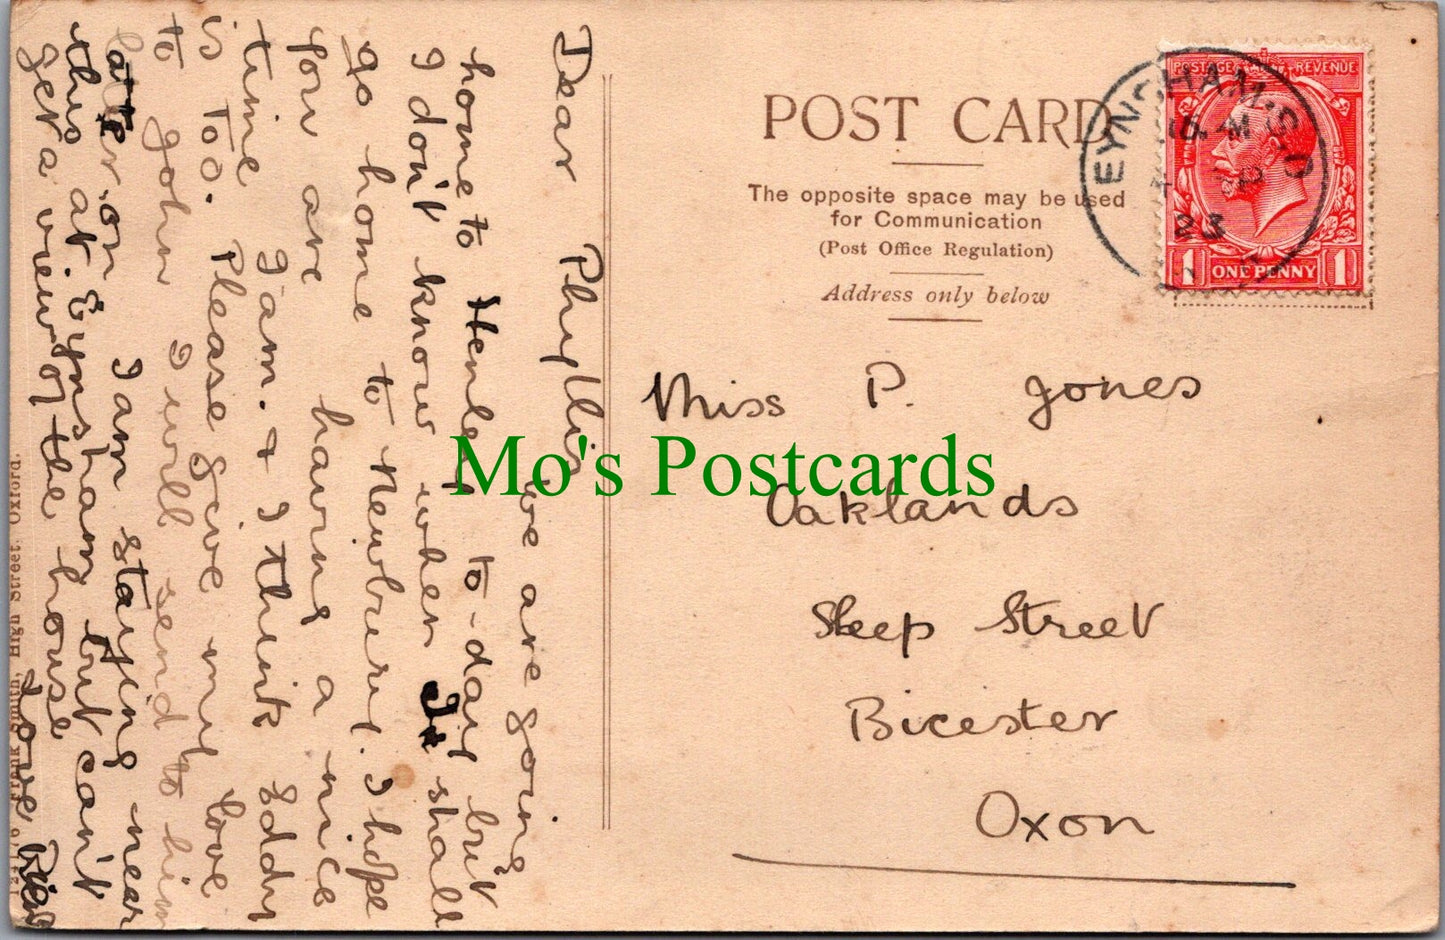 POST CARD
The opposite space may be used
for Communication
(Post Office Regulation)
Address only below
POSTAGE REVENUE
1 ONE PENNY 1
EYNSHAM. S.O
23
Miss P. Jones
Oaklands
Sheep Street
Bicester
Oxon
Dear Phyllis
we are going
home to Henley to-day but
I don't know when I shall
go home to Newbury. I hope
you are having a nice
time I am. & I think Eddy
is too. Please give my love
to John I will send to him
later on I am staying near
this at. Eynsham but can't
get a view of the house
Love
Frank Smith, High Street. Oxford.
Mo's Postcards